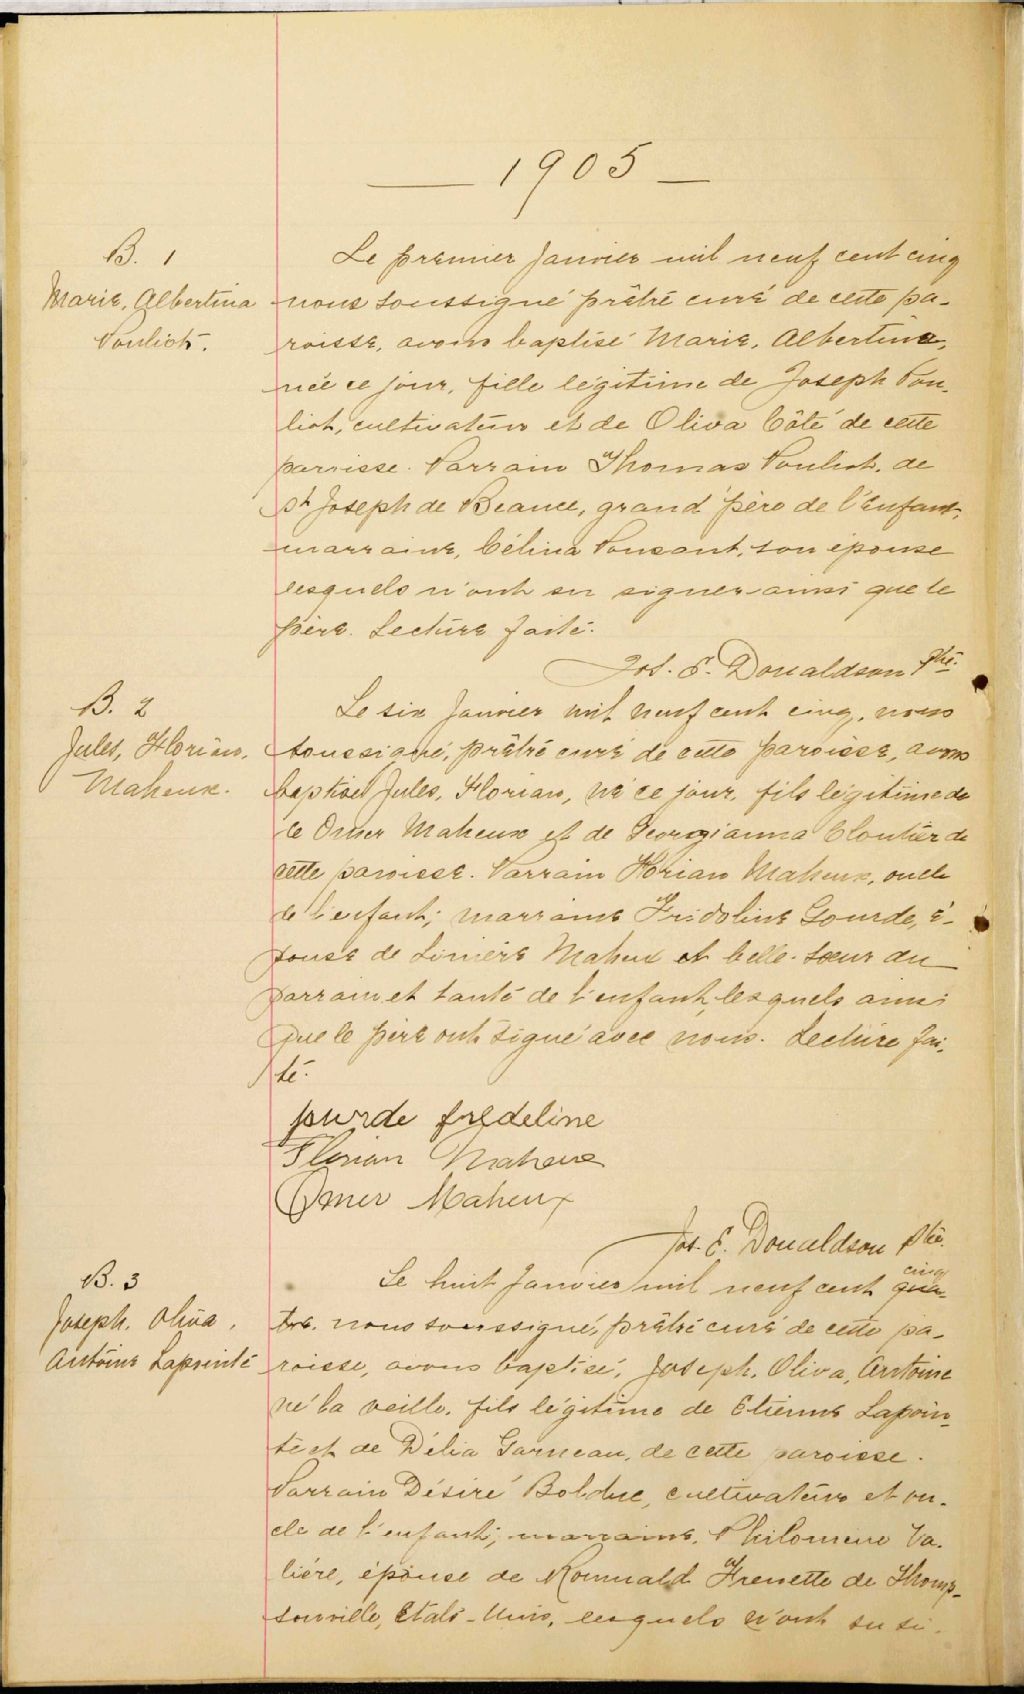 — 1905 —
B. 1
Marie, Albertina
Pouliot.
Le premier Janvier mil neuf cent cinq
nous soussigné prêtre curé de cette pa-
roisse, avons baptisé Marie, Albertina,
née ce jour, fille légitime de Joseph Pou-
liot, cultivateur et de Oliva Côté de cette
paroisse. Parrain Thomas Pouliot, de
St Joseph de Beauce, grand père de l'enfant,
marraine, Célina Ponsant, son épouse
lesquels n'ont su signer ainsi que le
père. Lecture faite.
Jos. E. Donaldson Ptre.
B. 2
Jules, Florian,
Maheux.
Le six Janvier mil neuf cent cinq, nous
soussigné, prêtre curé de cette paroisse, avons
baptisé Jules, Florian, né ce jour, fils légitime de
de Omer Maheux et de Georgianna Cloutier de
cette paroisse. Parrain Florian Maheux, oncle
de l'enfant; marraine Fridoline Gourde, é-
pouse de Linière Maheux et belle-soeur du
parrain et tante de l'enfant, lesquels ainsi
que le père ont signé avec nous. Lecture fai-
te.
purde fredeline
Florian Maheux
Omer Maheux
Jos. E. Donaldson Ptre.
B. 3
Joseph, Oliva,
Antoine Lapointe
Le huit Janvier mil neuf cent cinq qua-
tre, nous soussigné, prêtre curé de cette pa-
roisse, avons baptisé, Joseph, Oliva, Antoine
né la veille, fils légitime de Etienne Lapoin-
te et de Délia Garneau, de cette paroisse.
Parrain Désiré Bolduc, cultivateur et on-
cle de l'enfant; marraine, Philomene Va-
lière, épouse de Romuald Frenette de Thomp-
sonville, Etats-Unis, lesquels n'ont su si-